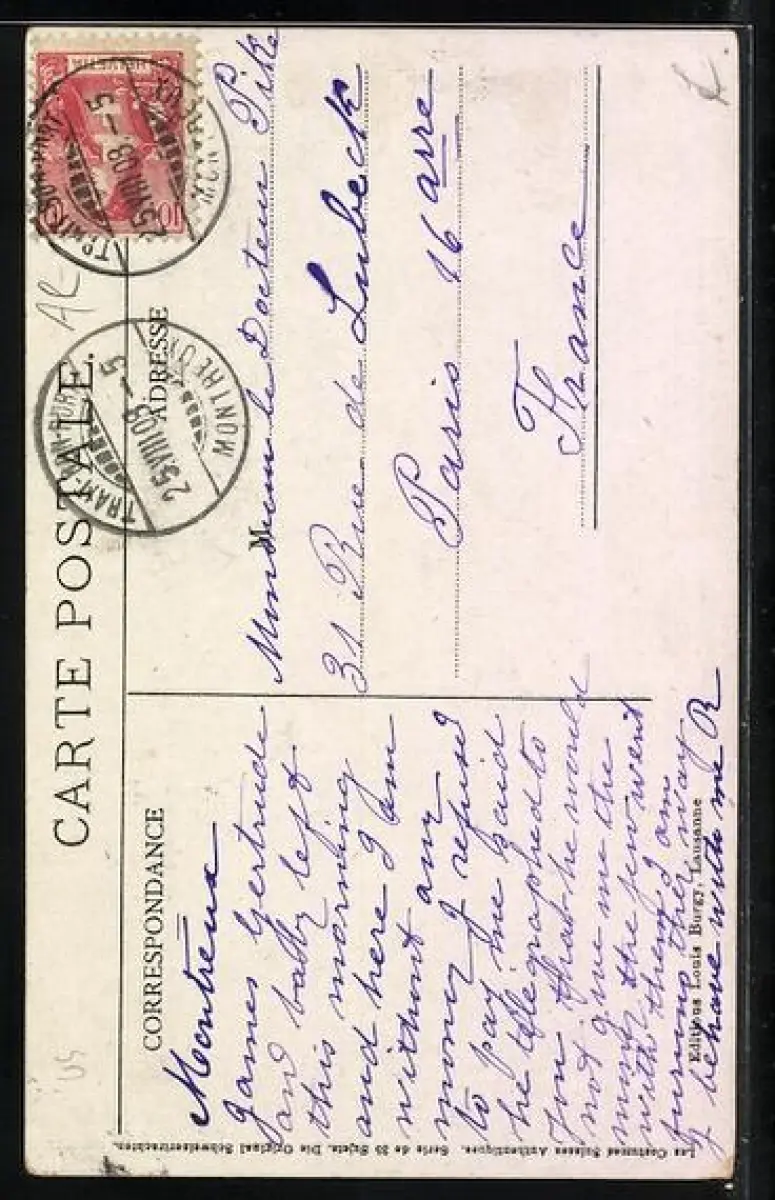 CARTE POSTALE.
CORRESPONDANCE
ADRESSE
Montreux
James Gertrude
and baby left
this morning
and here I am
without any
money J refused
to pay me said
he telegraphed to
you that he would
not give me the
money the few went
with them I am
furious they way
J behave with me R
M
Monsieur le Docteur Pike
31 Rue de Lubeck
Paris 16 arre
France
HELVETIA
10
25.VIII.08.–5
MONTREUX
25.VIII.08.–5
Editions Louis Burgy, Lausanne
Les Costumes Suisses Authentiques. Serie de 35 Sujets. Die Original Schweizertrachten.